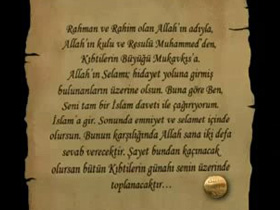 Rahman ve Rahim olan Allah'ın adıyla,
Allah'ın kulu ve Resulü Muhammed'den,
Kıbtilerin Büyüğü Mukavkıs'a.
Allah'ın Selamı; hidayet yoluna girmiş
bulunanların üzerine olsun. Buna göre Ben,
Seni tam bir İslam daveti ile çağırıyorum.
İslam'a gir. Sonunda emniyet ve selamet içinde
olursun. Bunun karşılığında Allah sana iki defa
sevab verecektir. Şayet bundan kaçınacak
olursan bütün Kıbtilerin günahı senin üzerinde
toplanacaktır...